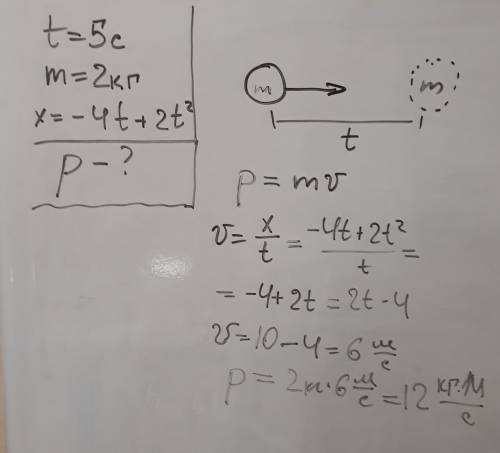 t=5c
m=2кг
x=-4t+2t²
p-?
m
m
t
p=mv
v=x/t=(-4t+2t²)/t=
=-4+2t=2t-4
v=10-4=6 м/с
p=2кг·6м/с=12 кг·м/с